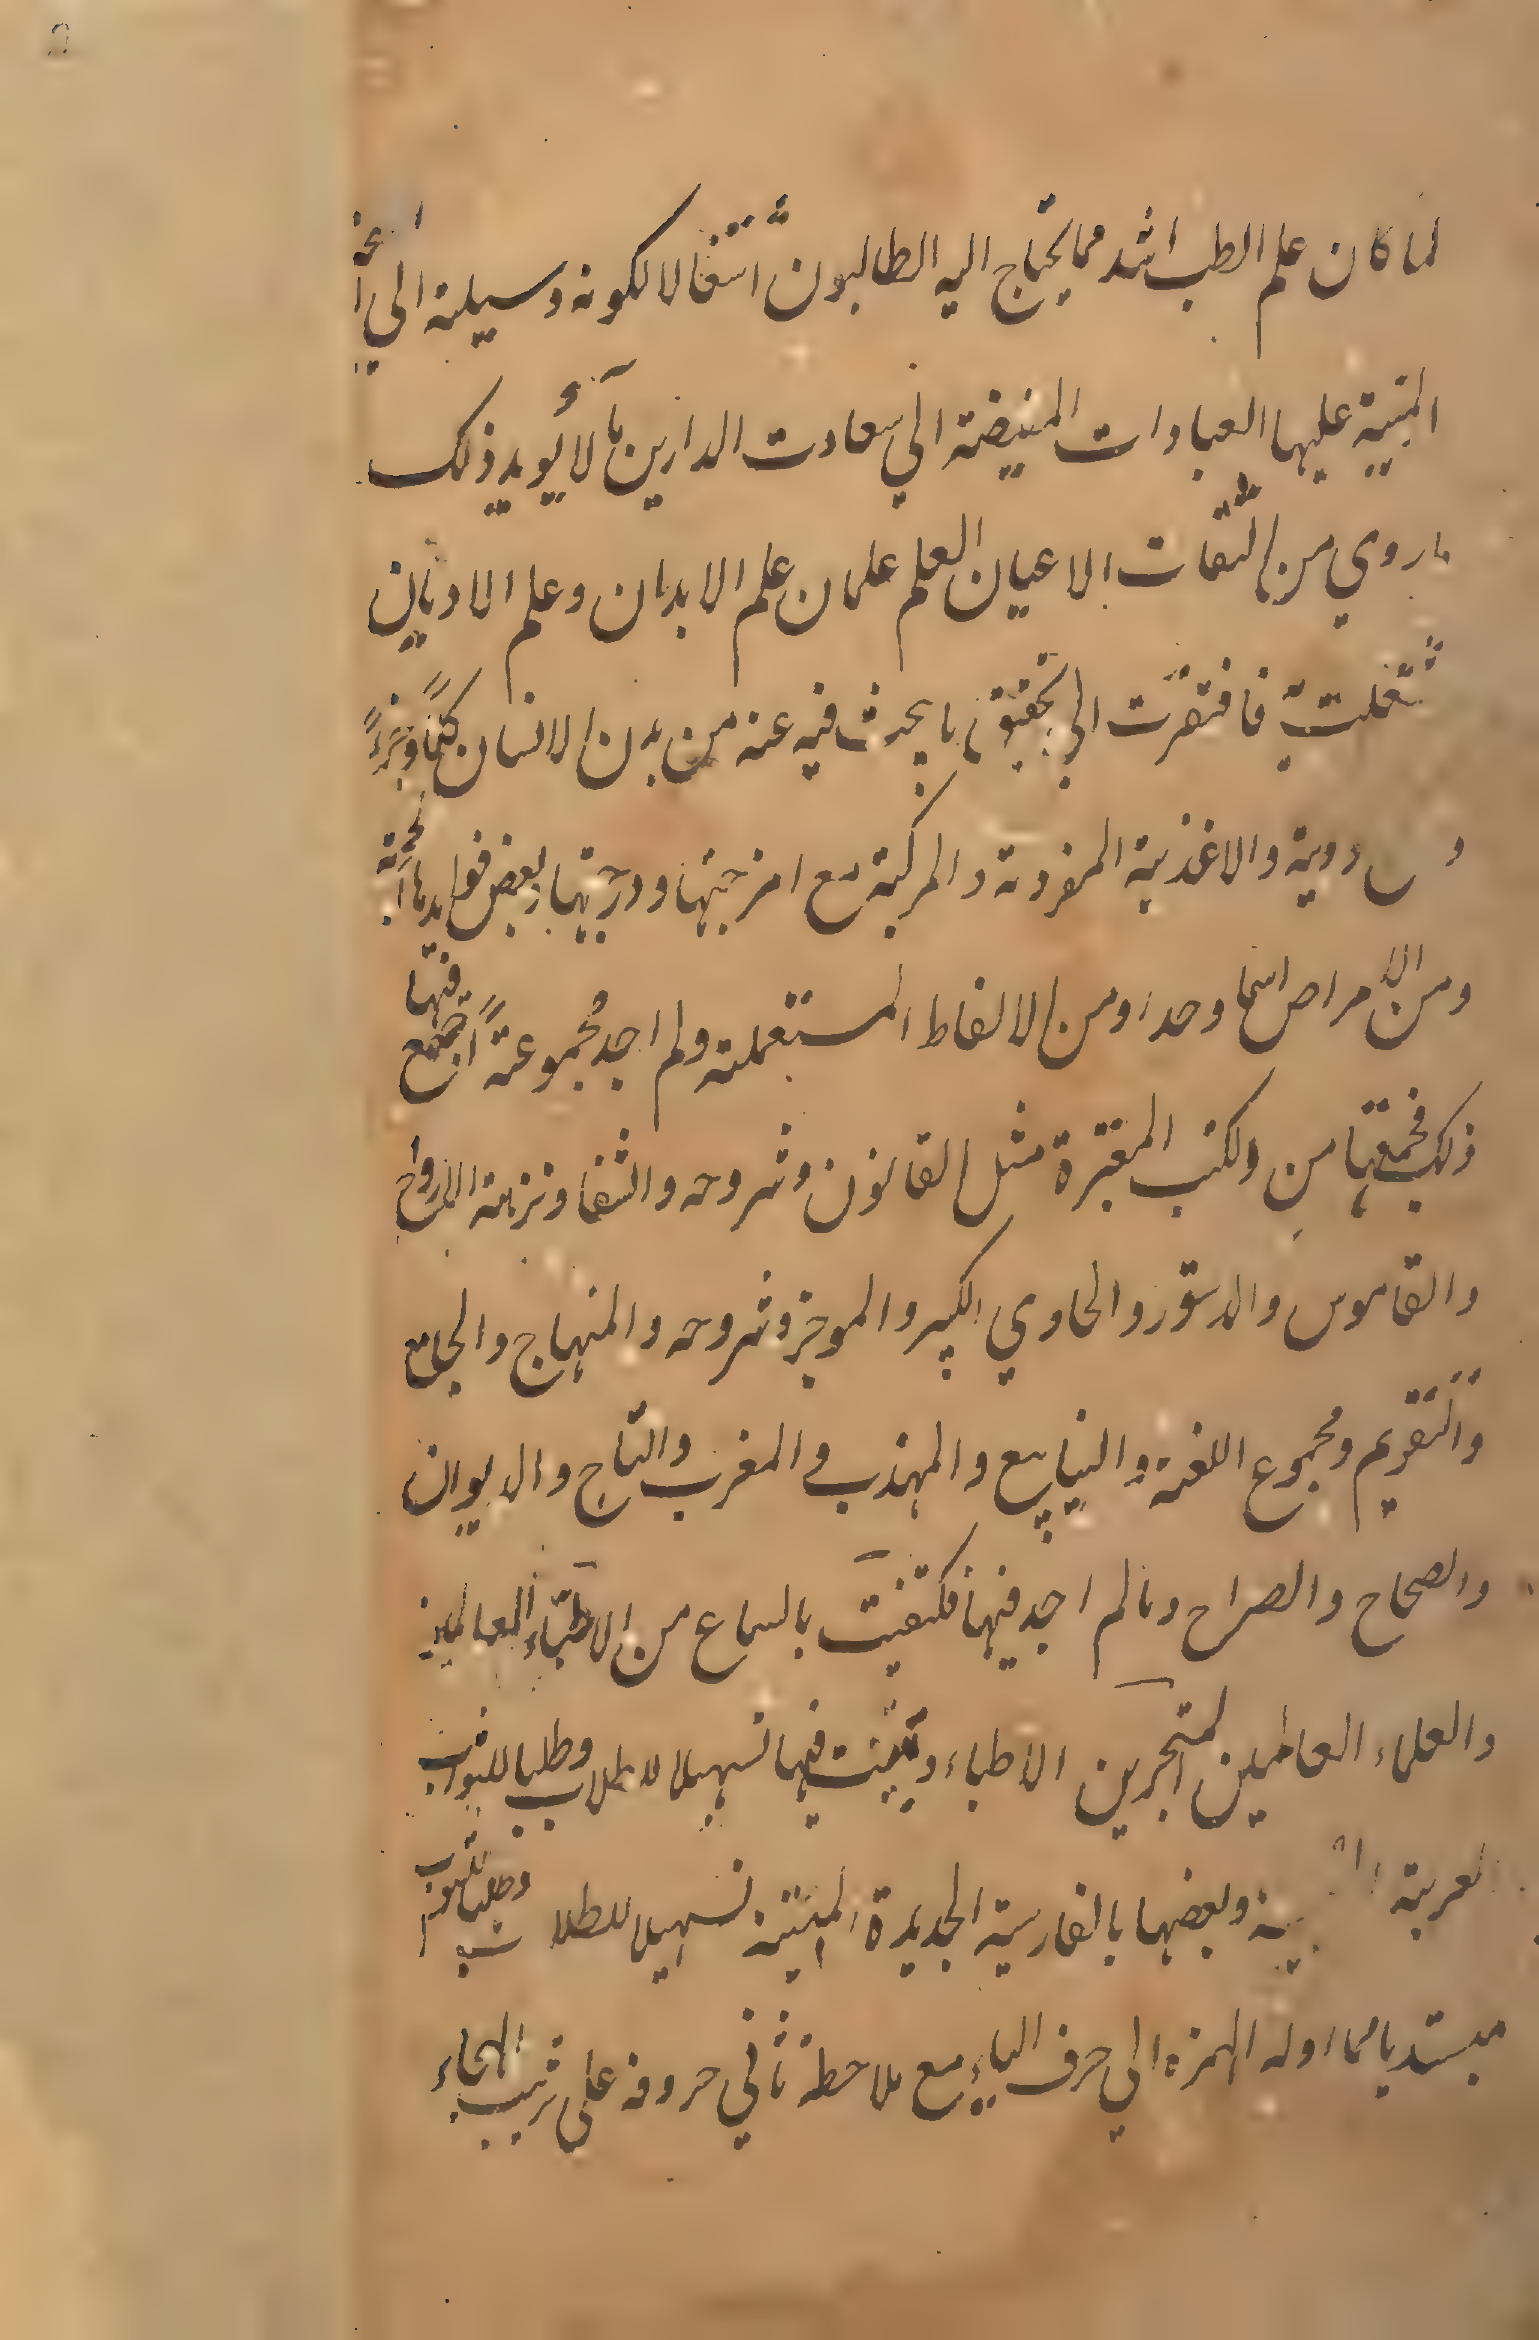 لما كان علم الطب اشد مما يحتاج اليه الطالبون اشتغالا لكونه وسيلة الي
المبنية عليها العبادات المفيضة الي سعادت الدارين مآلا يؤيد ذلك
ما روي من الثقات الاعيان العلم علمان علم الابدان وعلم الاديان
فافتقرت الي تحقيق ما يبحث فيه عنه من بدن الانسان كلاً وجزءً
دوية والاغذية المفردة والمركبة مع امزجتها ودرجتها وبعض فوايدها
ومن الامراض اسما وحدا ومن الالفاظ المستعملة ولم اجد مجموعةً اجتمع فيها
ذلك فجمعتها من الكتب المعتبرة مثل القانون وشروحه والشفا ونزهة الارواح
والقاموس والدستور والحاوي الكبير والموجز وشروحه والمنهاج والجامع
والتقويم ومجموع اللغة والينابيع والمهذب والمغرب والتاج والديوان
والصحاح والصراح ومالم اجد فيها فكتفيت بالسماع من الاطبّاء العالمين
والعلماء العاملين المتبحرين الاطباء وبينت فيها تسهيلا لطلاب وطلبا للثواب
العربية وبعضها بالفارسية الجديدة المبينة تسهيلا للطلاب وطلبا للثواب
مبتديا مما اوله الهمزة الي حرف الياء مع ملاحظة ثاني حروفه علي ترتيب الهجاء